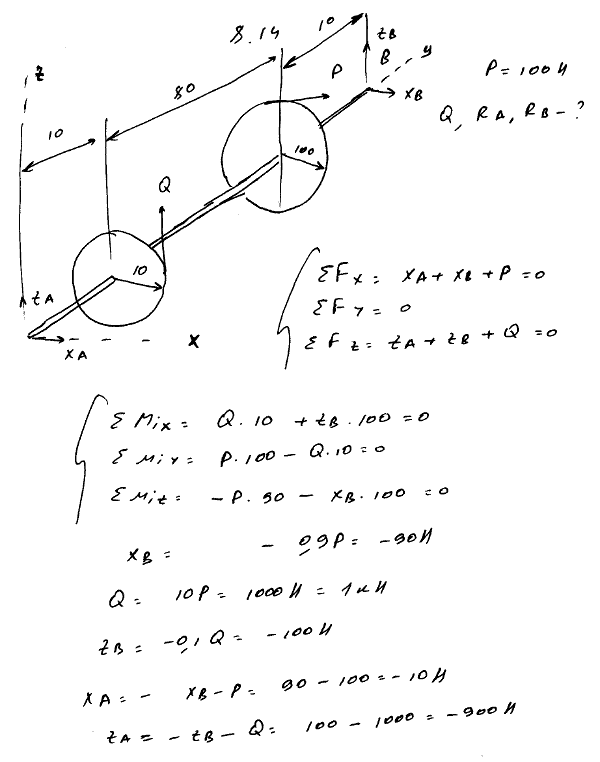 8.14
10
z
z B
B
y
P
x B
P = 100 Н
Q, R A, R B - ?
80
10
100
Q
10
z A
x A
x
Σ F x = x A + x B + P = 0
Σ F y = 0
Σ F z = z A + z B + Q = 0
Σ M i x = Q · 10 + z B · 100 = 0
Σ M i y = P · 100 - Q · 10 = 0
Σ M i z = - P · 90 - x B · 100 = 0
x B = - 0,9 P = - 90 Н
Q = 10 P = 1000 Н = 1 кН
z B = - 0,1 Q = - 100 Н
x A = - x B - P = 90 - 100 = - 10 Н
z A = - z B - Q = 100 - 1000 = - 900 Н